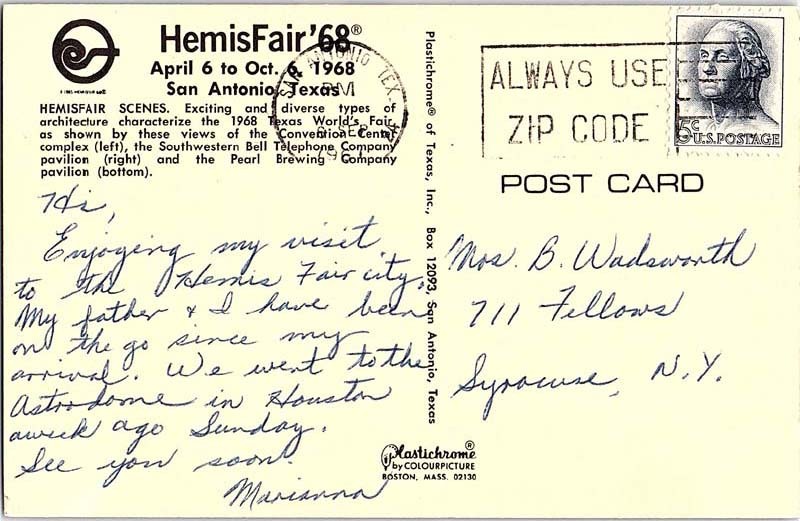 HemisFair'68®
April 6 to Oct. 6 1968
San Antonio, Texas
© 1965 HEMISFAIR 68®
HEMISFAIR SCENES. Exciting and diverse types of
architecture characterize the 1968 Texas World's Fair,
as shown by these views of the Convention Center
complex (left), the Southwestern Bell Telephone Company
pavilion (right) and the Pearl Brewing Company
pavilion (bottom).
SAN ANTONIO, TEX
PM
SEP
ALWAYS USE
ZIP CODE
5c
U.S. POSTAGE
POST CARD
Plastichrome® of Texas, Inc., Box 12093, San Antonio, Texas
Hi,
Enjoying my visit
to the Hemis Fair city.
My father & I have been
on the go since my
arrival. We went to the
Astrodome in Houston
a week ago Sunday.
See you soon.
Marianna
Mrs. B. Wadsworth
711 Fellows
Syracuse, N.Y.
Plastichrome®
by COLOURPICTURE
BOSTON, MASS. 02130